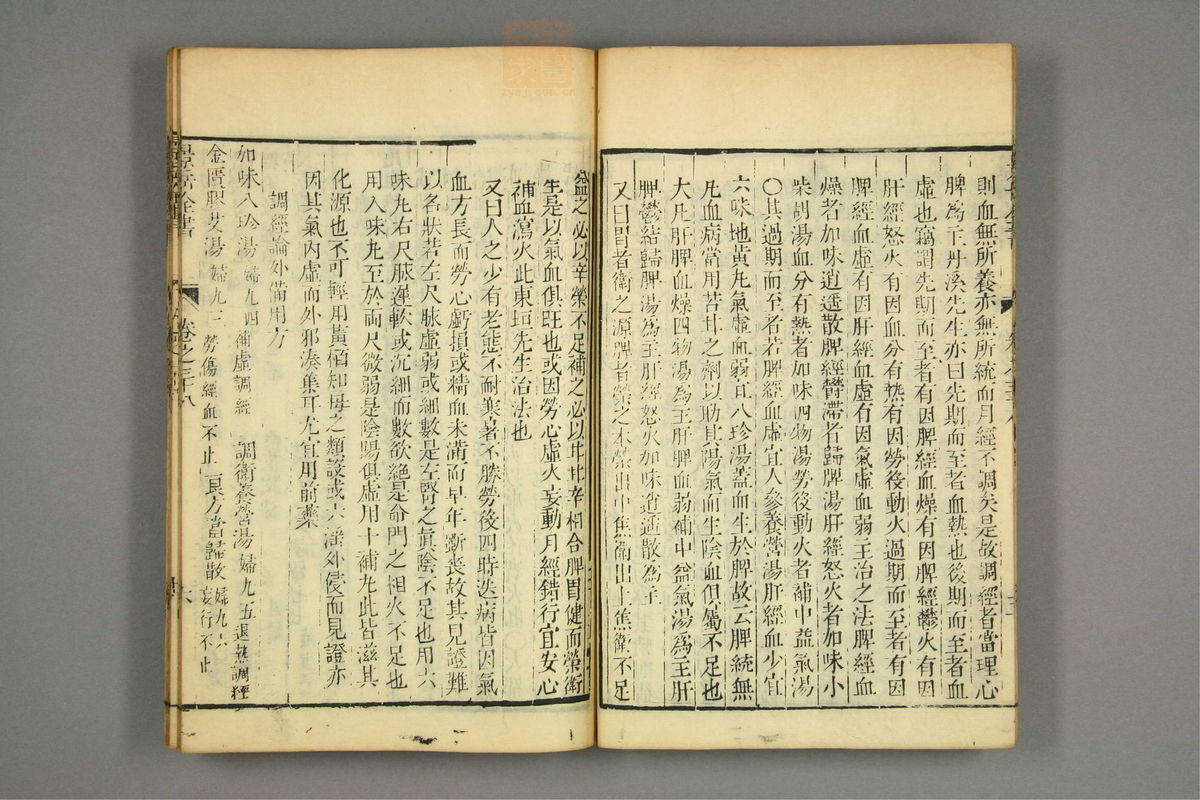 則血無所養亦無所統而月經不調矣是故調經者當理心
脾爲主丹溪先生亦曰先期而至者血熱也後期而至者血
虛也竊謂先期而至者有因脾經血燥有因脾經鬱火有因
肝經怒火有因血分有熱有因勞後動火過期而至者有因
脾經血虛有因肝經血虛有因氣虛血弱主治之法脾經血
燥者加味逍遥散脾經鬱滯者歸脾湯肝經怒火者加味小
柴胡湯血分有熱者加味四物湯勞後動火者補中益氣湯
〇其過期而至者若脾經血虛宜人參養營湯肝經血少宜
六味地黃丸氣虛血弱宜八珍湯蓋血生於脾故云脾統無
凡血病當用苦甘之劑以助其陽氣而生陰血俱屬不足也
大凡肝脾血燥四物湯爲主肝脾血弱補中益氣湯爲主肝
脾鬱結歸脾湯爲主肝經怒火加味逍遥散爲主
又曰胃者衛之源脾者榮之本榮出中焦衛出上焦衛不足
益之必以辛榮不足補之必以甘甘辛相合脾胃健而榮衛
生是以氣血俱旺也或因勞心虛火妄動月經錯行宜安心
補血瀉火此東垣先生治法也
又曰人之少有老態不耐寒暑不勝勞役四時迭病皆因氣
血方長而勞心虧損或精血未滿而早年斲喪故其見證難
以名狀若左尺脉虛弱或細數是左腎之眞陰不足也用六
味丸右尺脉遲軟或沉細而數欲絶是命門之相火不足也
用八味丸至於両尺微弱是陰陽俱虛用十補丸此皆滋其
化源也不可輕用黃栢知母之類設或六淫外侵而見證亦
因其氣內虛而外邪湊集耳尤宜用前藥
調經論外備用方
加味八珍湯 婦九四 補虛調經 調衛養營湯 婦九五 退熱調經
金匱膠艾湯 婦九三 勞傷經血不止 良方當歸散 婦九六 妄行不止
景岳全書 卷之三十八 六